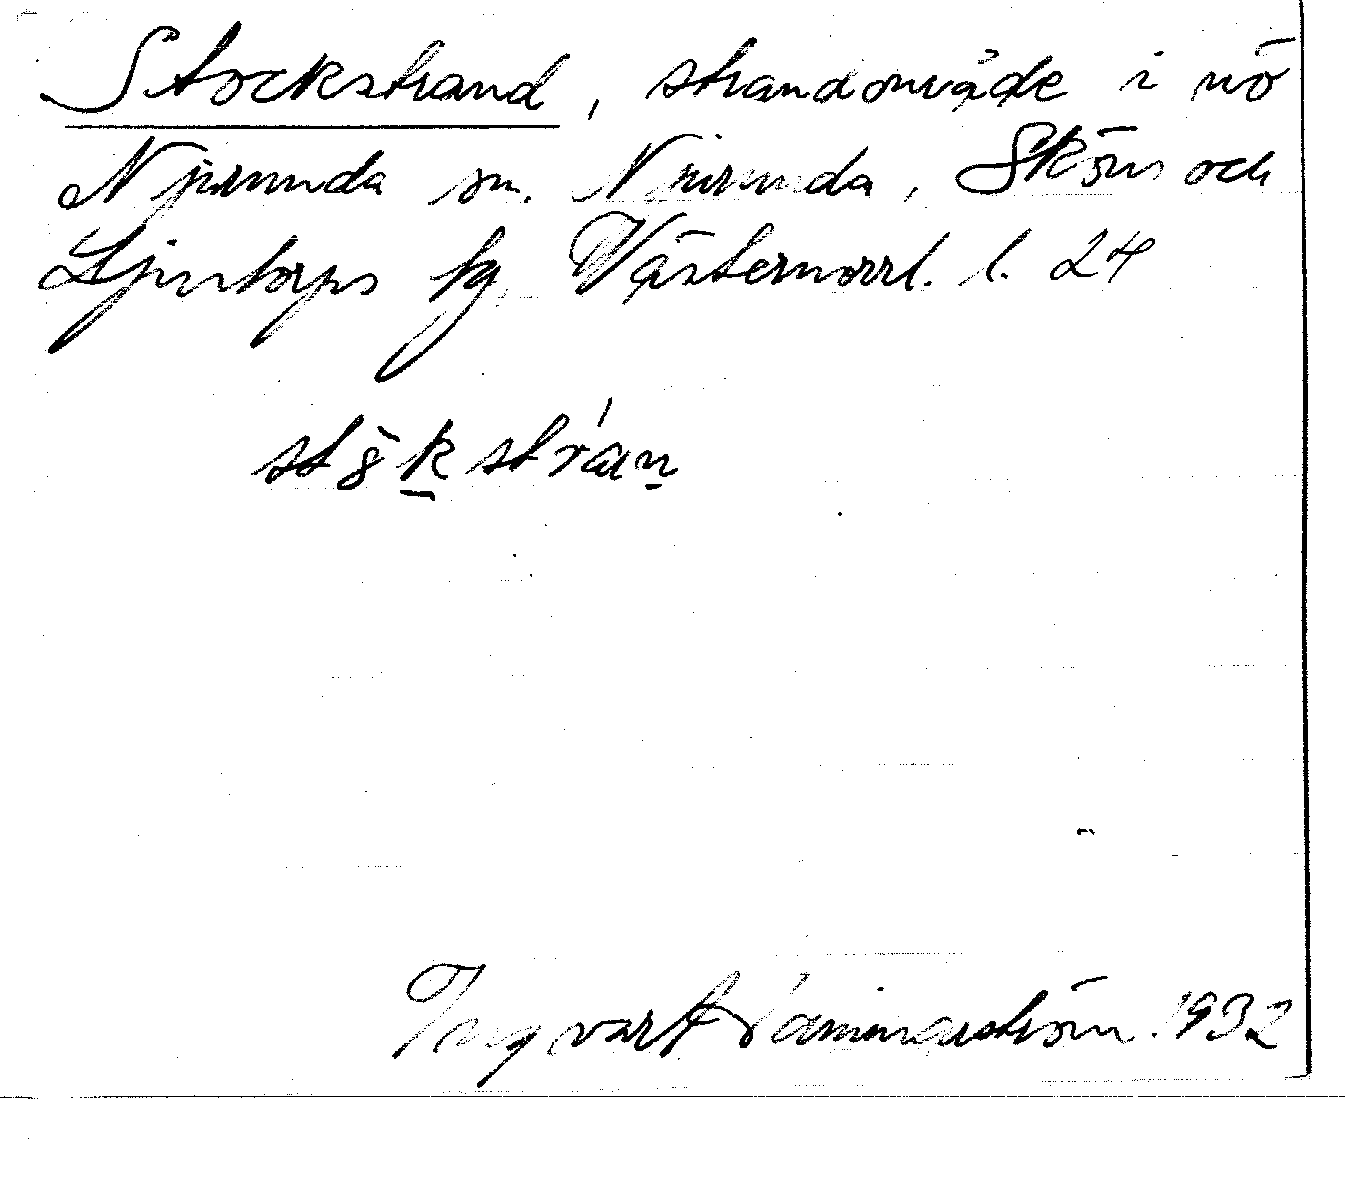 Stockstrand, strandområde i nö
Njurunda sn. Njurunda, Sköns och
Ljustorps tg Västernorrl. l. 24
stŏ̤k strán̠
Ingvar Främmerström. 1932